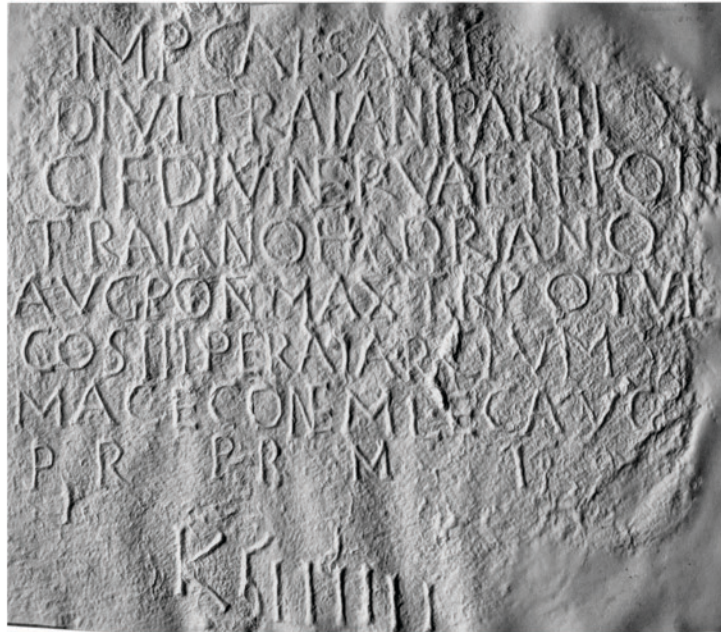 IMP CAESARI
DIVI TRAIANI PARTHI
CI F DIVI NERVAE NEPOTI
TRAIANO HADRIANO
AVG PON MAX TR POT VII
COS III PER A LARCIVM
MACEDONEM LEG AVG
P R P R M